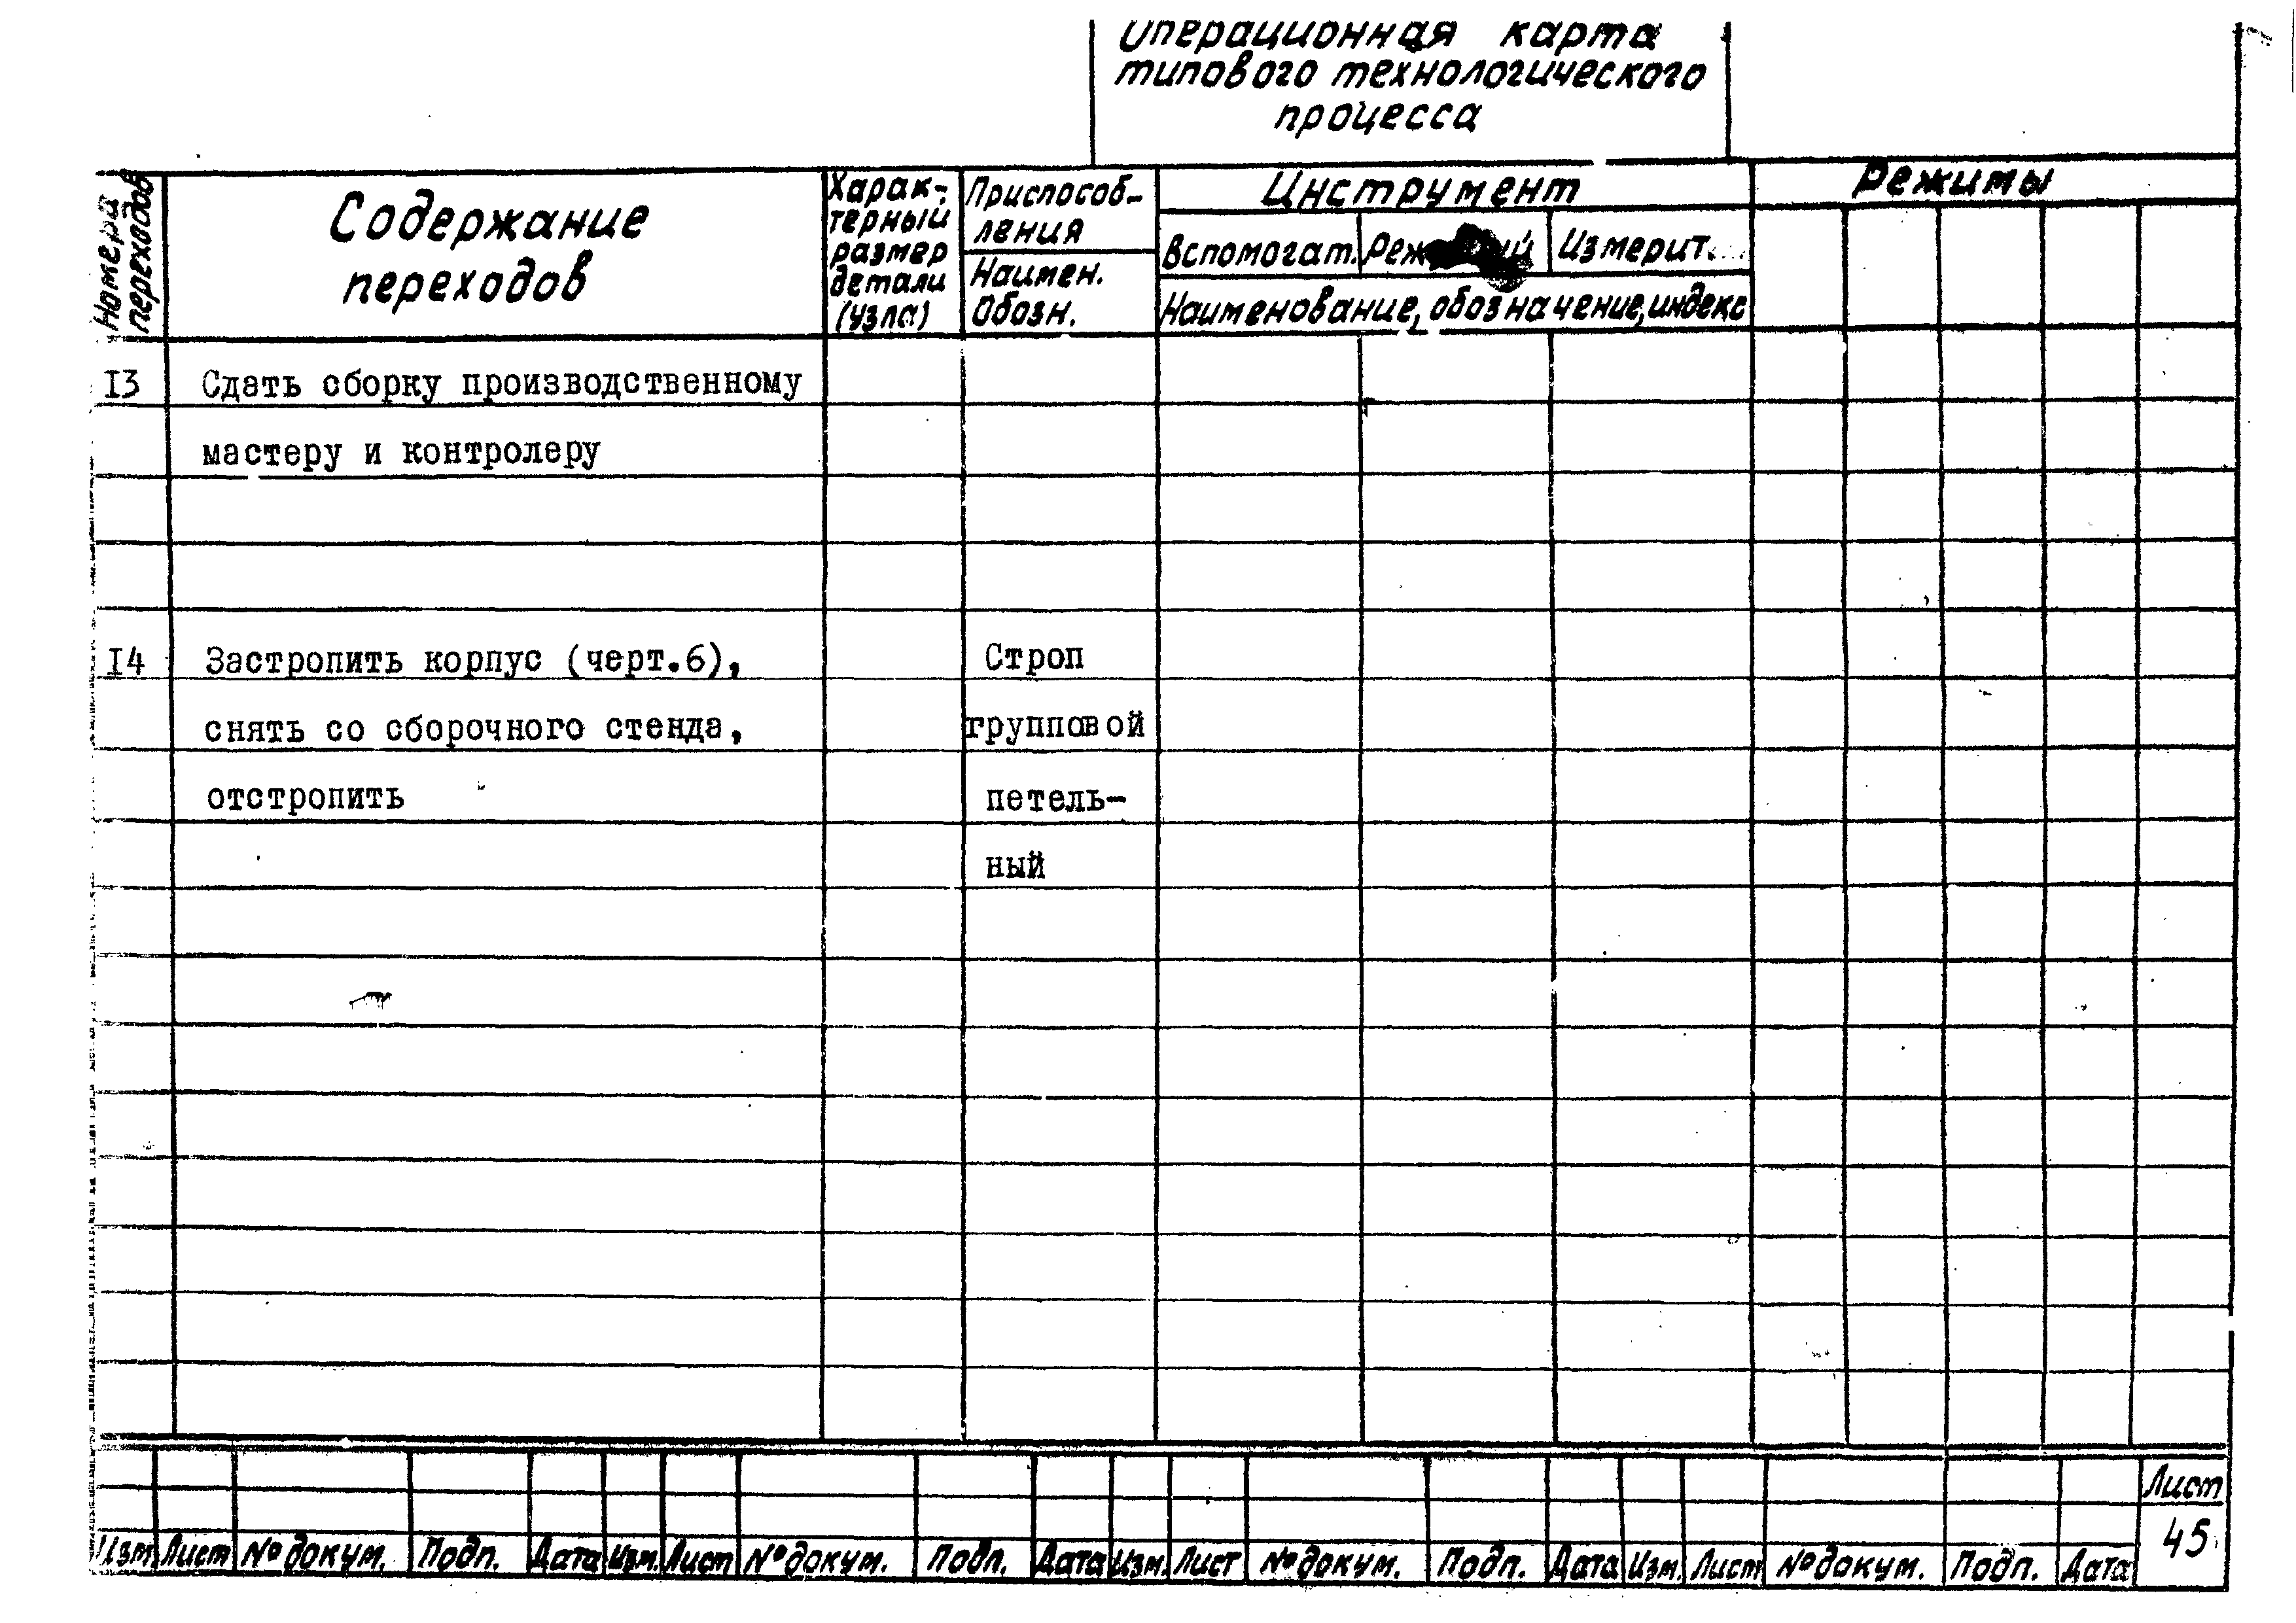 Операционная карта
типового технологического
процесса
Номера
переходов
Содержание
переходов
Харак-
терный
размер
детали
(узла)
Приспособ-
ления
Наимен.
Обозн.
Инструмент
Вспомогат.
Измерит.
Наименование, обозначение, индекс
Режимы
13 Сдать сборку производственному
мастеру и контролеру
14 Застропить корпус (черт.6), Строп
снять со сборочного стенда, групповой
отстропить петель-
ный
Лист
45
Изм Лист № докум. Подп. Дата Изм. Лист № докум. Подп. Дата Изм. Лист № докум. Подп. Дата Изм. Лист № докум. Подп. Дата